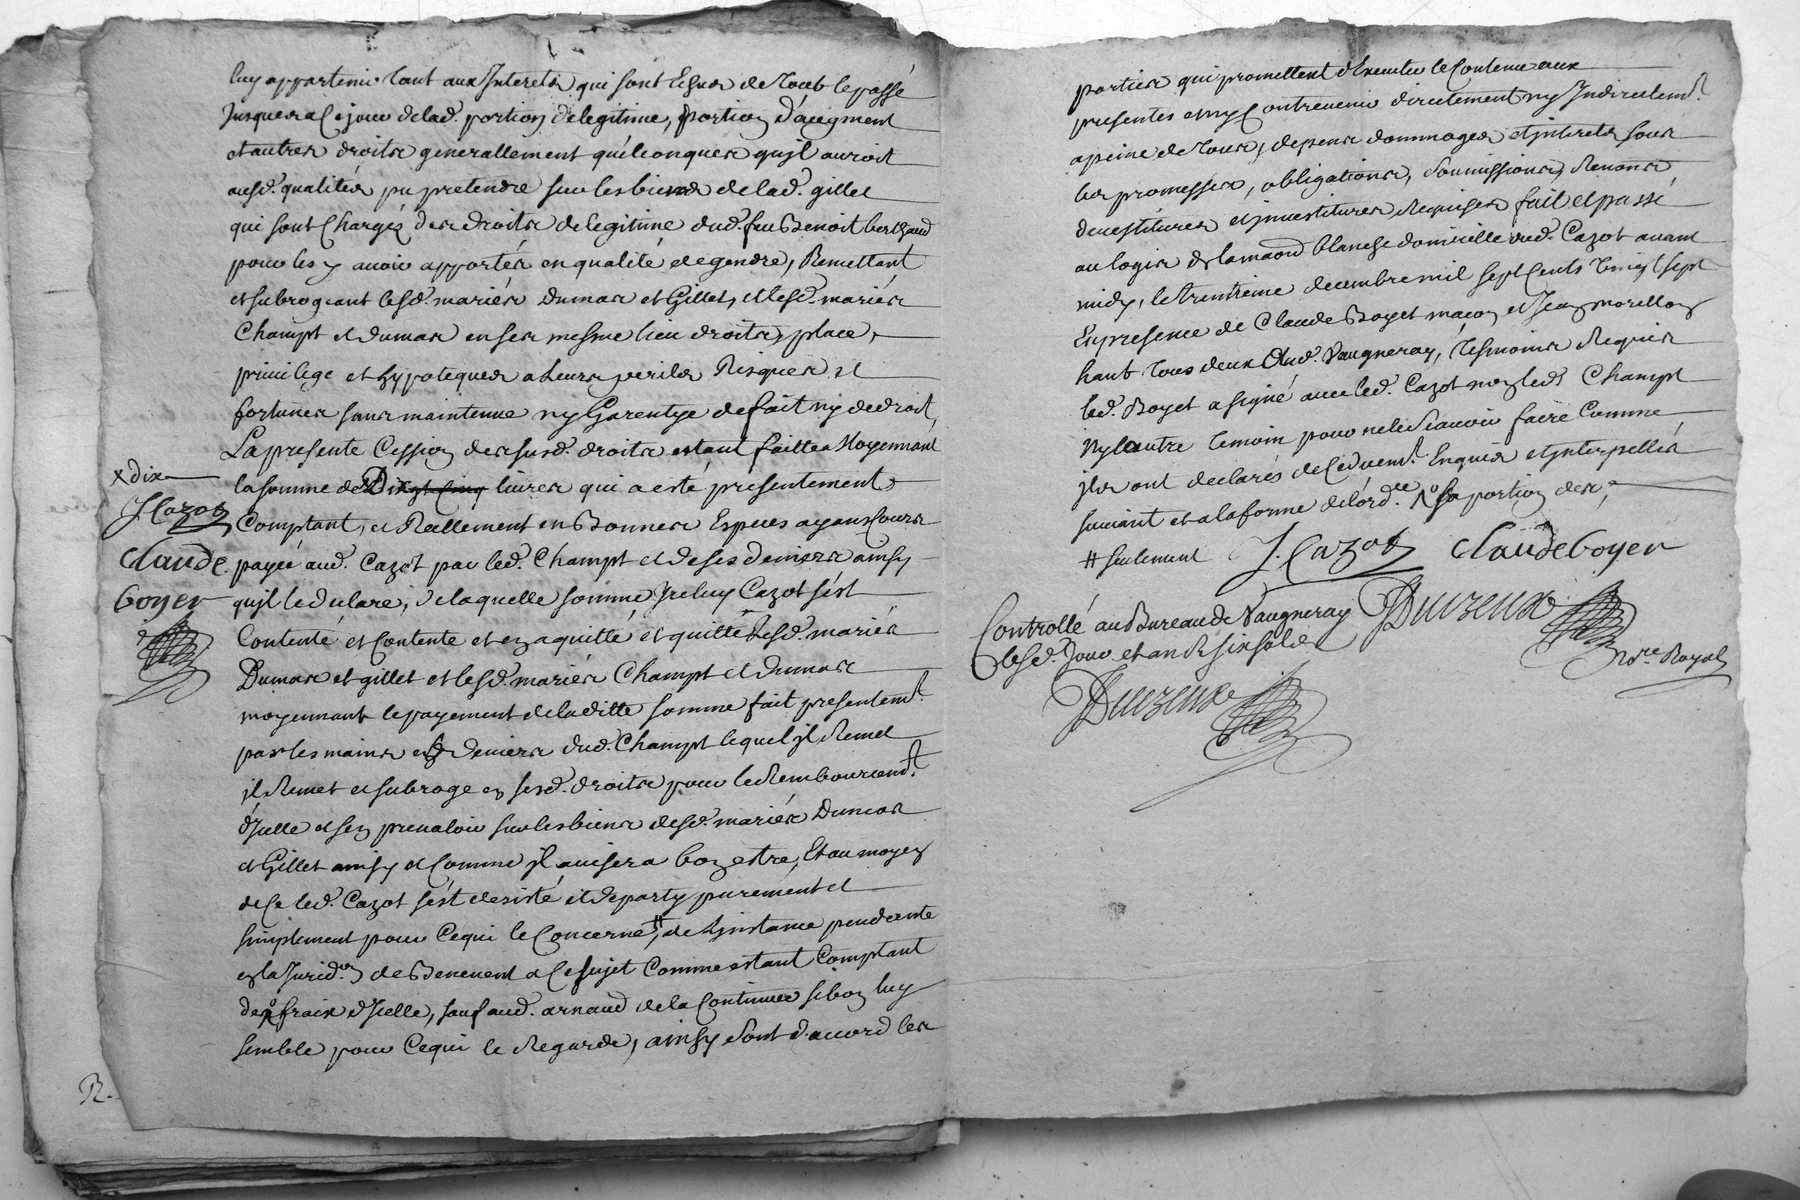 luy appartenir tant aux Interets qui sont Echus de tout le passé
Jusques a Ce jour de lad. portion de legitime, portion d'augment
et autres droits generallement quelconques qu'jl auroit
ausd. qualités pu pretendre sur les biens de lad. gillet
qui sont Chargés des droits de legitime dud. feu Benoit berthaud
pour les y avoir apportés en qualité de gendre, Remettant
et subrogeant lesd. mariés Dumas et Gillet, et lesd. mariés
Champt et dumas en ses mesme lieu droits, place,
privilege et hypoteques a Leurs perils Risques et
fortunes sans maintenue ny Garentye de fait ny de droit
La presente Cession des susd. droits estant faitte Moyennant
la somme de Dix livres qui a esté presentement
Comptant, et Reellement en Bonnes Especes ayans Cours
payée aud. Cazot par led. Champt et de ses deniers ainsy
qu'jl le declare, de laquelle somme Jceluy Cazot s'est
Contenté et Contente et en a quitté et quitte lesd. mariés
Dumas et gillet et lesd. mariés Champt et dumas
moyennant le payement de laditte somme fait presentemt.
par les mains et deniers dud. Champt lequel jl Remet
jl Remet et subroge en sesd. droits pour le Remboursemt.
d'Jcelle et s'en prevaloir sur les biens desd. mariés Dumas
et Gillet ainsy et Comme jl avisera bon estre, Et au moyen
de Ce led. Cazot s'est desisté et departy purement et
simplement pour Ce qui le Concerne #, de L'jnstance pendante
en la Juridon. de Benevent a Ce sujet Comme estant Comptant
des frais d'Jcelle, sauf aud. arnaud de la Continuer si bon luy
semble pour Ce qui le Regarde, ainsy sont d'accord les
x dix
J Cazot
claude
boyer
R.
parties qui promettent d'Executer le Contenu aux
presentes et ny Contrevenir directement ny Indirectemt.
a peine de tous, depens dommages et jnterets sous
les promesses, obligations, Soumissions, Renons
devestitures et jnvestitures Requises fait et passé
au logis de la maison blanche domicille dud. Cazot avant
midy, le trentieme decembre mil sept Cents vingt sept
En presence de Claude Boyet maçon et Jean morellon
haut tous deux dud. Vaugneray, tesmoins Requis
led. Boyet a signé avec led. Cazot non led. Champt
ny l'autre temoin pour ne le Sçavoir faire Comme
jls ont declarés de Ce duemt. Enquis et jnterpellés
suivant et a la forme de l'ordce. sa portion des,
# seulement J. Cazot claude boyer
Controllé au Bureau de Vaugneray Duvzeux
lesd. Jour et an R. six sols Nore. Royal
Duvzeux